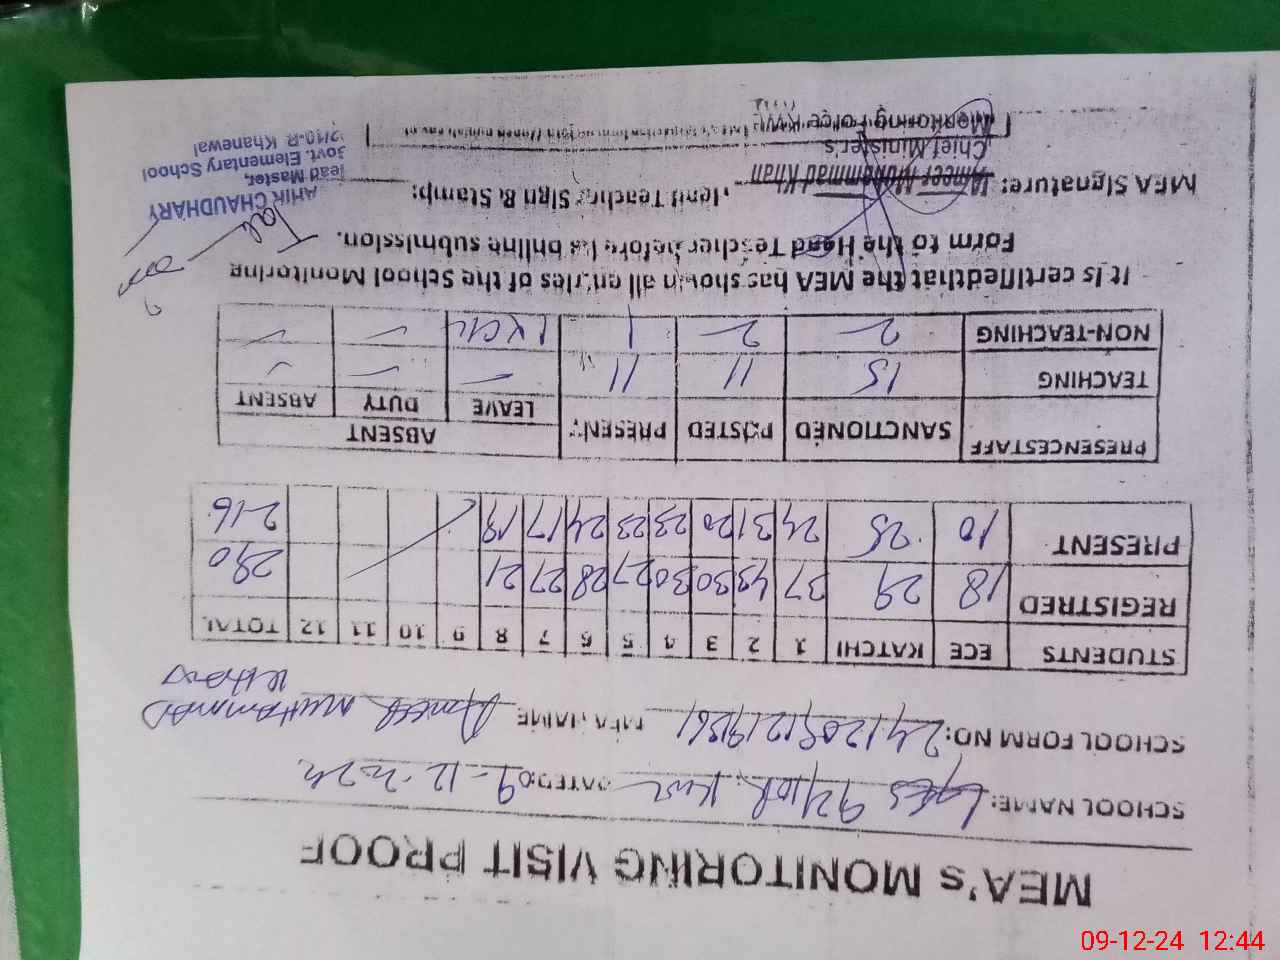 MEA's MONITORING VISIT PROOF
SCHOOL NAME: GES 92/10R KWL DATED: 09-12-2024
SCHOOL FORM NO: MEA NAME Ameer Muhammad Khan
STUDENTS ECE KATCHI 1 2 3 4 5 6 7 8 9 10 11 12 TOTAL
REGISTRED 18 29 37 43 30 30 27 28 27 21 290
PRESENT 10 25 24 31 20 23 23 24 17 19 216
PRESENCESTAFF SANCTIONED POSTED PRESENT ABSENT
LEAVE DUTY ABSENT
TEACHING 15 11 11 - - -
NON-TEACHING 2 2 1 - -
It is certifiedthat the MEA has shown all entries of the School Monitoring
Form to the Head Teacher before its online submission.
MEA Signature: Ameer Muhammad Khan Head Teacher Sign & Stamp:
Chief Minister's
Monitoring Force KWL
CHAUDHARY
Head Master,
Govt. Elementary School
92/10-R Khanewal
09-12-24 12:44